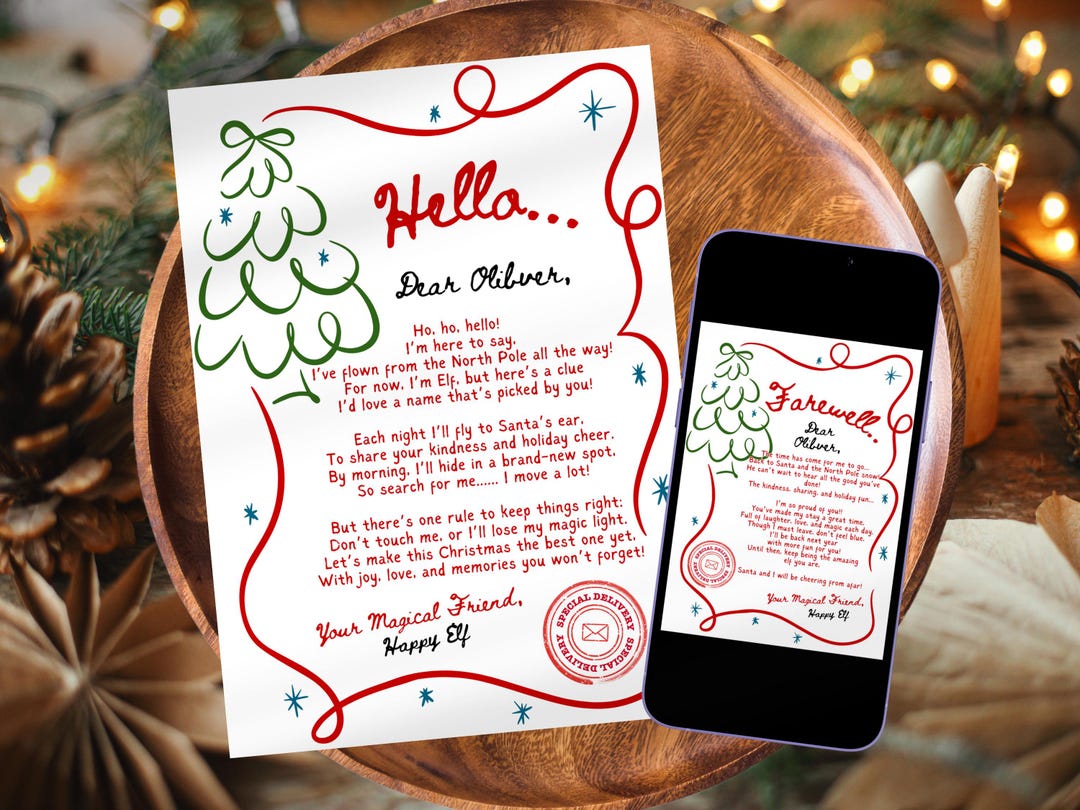 Hello...
Dear Olibver,
Ho, ho, hello!
I'm here to say,
I've flown from the North Pole all the way!
For now, I'm Elf, but here's a clue
I'd love a name that's picked by you!
Each night I'll fly to Santa's ear,
To share your kindness and holiday cheer.
By morning, I'll hide in a brand-new spot,
So search for me...... I move a lot!
But there's one rule to keep things right:
Don't touch me, or I'll lose my magic light.
Let's make this Christmas the best one yet,
With joy, love, and memories you won't forget!
Your Magical Friend,
Happy Elf
SPECIAL DELIVERY SPECIAL DELIVERY
Farewell..
Dear
Olibver,
The time has come for me to go...
Back to Santa and the North Pole snow
He can't wait to hear all the good you've
done!
The kindness, sharing, and holiday fun...
I'm so proud of you!!
You've made my stay a great time,
Full of laughter, love, and magic each day,
Though I must leave, don't feel blue,
I'll be back next year
with more fun for you!
Until then, keep being the amazing
elf you are,
Santa and I will be cheering from afar!
Your Magical Friend,
Happy Elf
SPECIAL DELIVERY SPECIAL DELIVERY